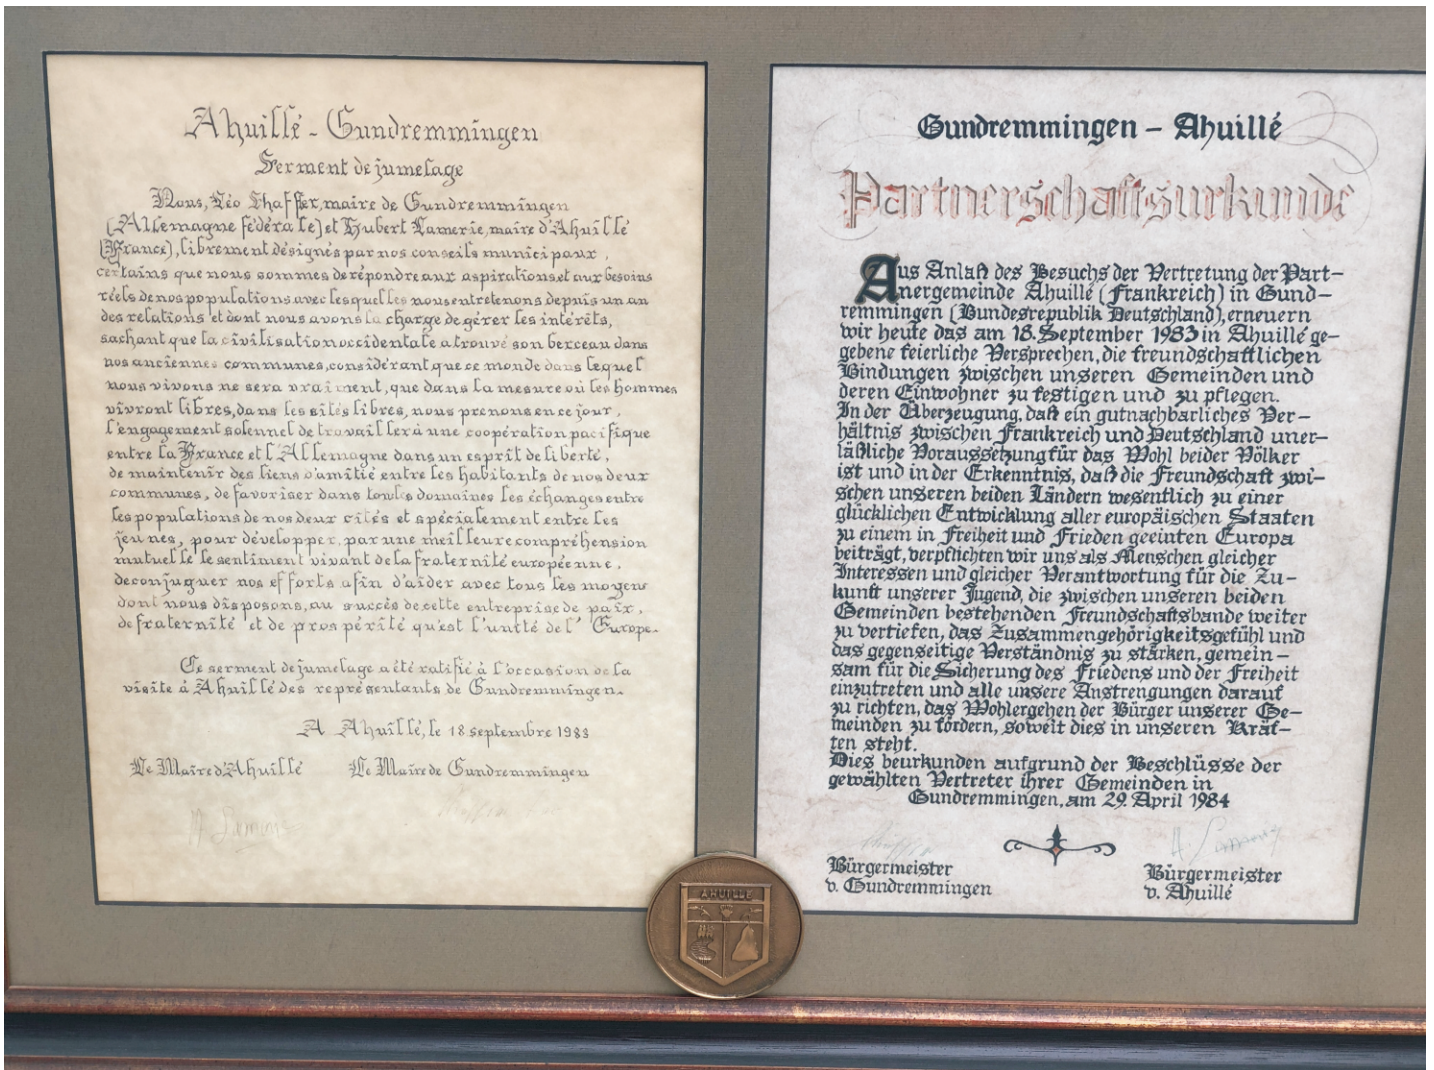 Ahuillé - Gundremmingen
Serment de jumelage
Nous, Léo Schaffer, maire de Gundremmingen
(Allemagne fédérale) et Hubert Lamerie, maire d'Ahuillé
(France), librement désignés par nos conseils municipaux,
certains que nous sommes de répondre aux aspirations et aux besoins
réels de nos populations avec lesquelles nous entretenons depuis un an
des relations et dont nous avons la charge de gérer les intérêts,
sachant que la civilisation occidentale a trouvé son berceau dans
nos anciennes communes, considérant que ce monde dans lequel
nous vivons ne sera vraiment, que dans la mesure où les hommes
vivront libres, dans les sités libres, nous prenons en ce jour,
l'engagement solennel de travailler à une coopération pacifique
entre la France et l'Allemagne dans un esprit de liberté,
de maintenir des liens d'amitié entre les habitants de nos deux
communes, de favoriser dans touts domaines les échanges entre
les populations de nos deux cités et spécialement entre les
jeunes, pour développer, par une meilleure compréhension
mutuelle le sentiment vivant de la fraternité européenne,
de conjuguer nos efforts afin d'aider avec tous les moyens
dont nous disposons, au succès de cette entreprise de paix,
de fraternité et de prospérité qu'est l'unité de l'Europe.
Ce serment de jumelage a été ratifié à l'occasion de la
visite à Ahuillé des représentants de Gundremmingen.
A Ahuillé, le 18 septembre 1983
Le Maire d'Ahuillé Le Maire de Gundremmingen
Gundremmingen – Ahuillé
Partnerschaftsurkunde
Aus Anlaß des Besuchs der Vertretung der Part-
nergemeinde Ahuillé (Frankreich) in Gund-
remmingen (Bundesrepublik Deutschland), erneuern
wir heute das am 18. September 1983 in Ahuillé ge-
gebene feierliche Versprechen, die freundschaftlichen
Bindungen zwischen unseren Gemeinden und
deren Einwohner zu festigen und zu pflegen.
In der Überzeugung, daß ein gutnachbarliches Ver-
hältnis zwischen Frankreich und Deutschland uner-
läßliche Voraussetzung für das Wohl beider Völker
ist und in der Erkenntnis, daß die Freundschaft zwi-
schen unseren beiden Ländern wesentlich zu einer
glücklichen Entwicklung aller europäischen Staaten
zu einem in Freiheit und Frieden geeinten Europa
beiträgt, verpflichten wir uns als Menschen gleicher
Interessen und gleicher Verantwortung für die Zu-
kunft unserer Jugend, die zwischen unseren beiden
Gemeinden bestehenden Freundschaftsbande weiter
zu vertiefen, das Zusammengehörigkeitsgefühl und
das gegenseitige Verständnis zu stärken, gemein-
sam für die Sicherung des Friedens und der Freiheit
einzutreten und alle unsere Anstrengungen darauf
zu richten, das Wohlergehen der Bürger unserer Ge-
meinden zu fördern, soweit dies in unseren Kräf-
ten steht.
Dies beurkunden aufgrund der Beschlüsse der
gewählten Vertreter ihrer Gemeinden in
Gundremmingen, am 29. April 1984
Bürgermeister
v. Gundremmingen
Bürgermeister
v. Ahuillé
AHUILLÉ